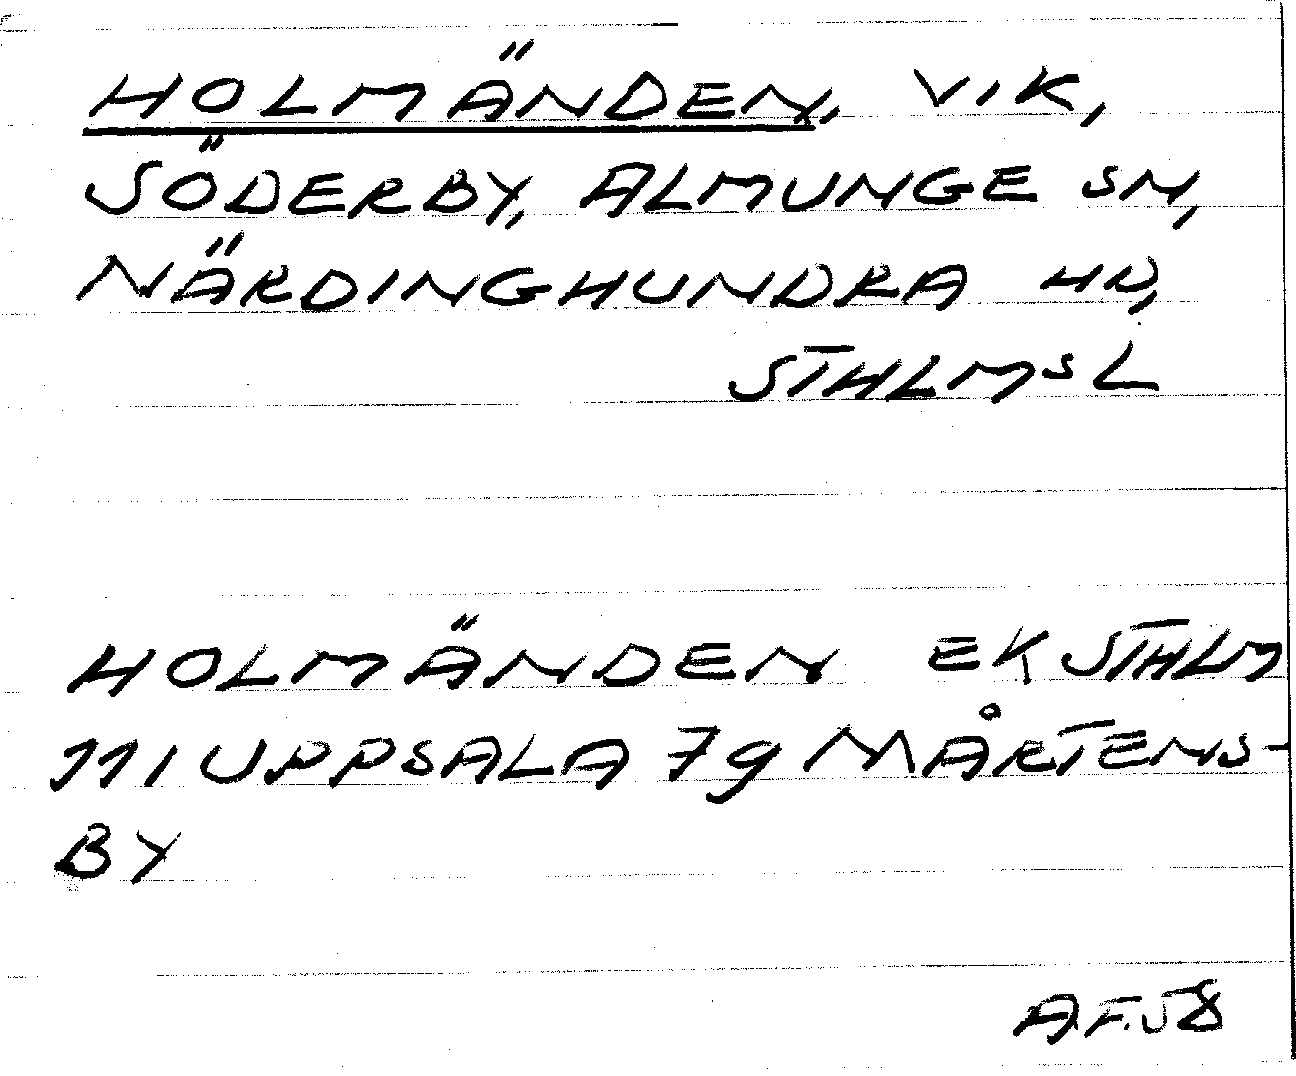 HOLMÄNDEN, VIK,
SÖDERBY, ALMUNGE SN,
NÄRDINGHUNDRA HD,
STHLMS L
HOLMÄNDEN EK STHLM
111 UPPSALA 79 MÅRTENS-
BY
A.F. 58